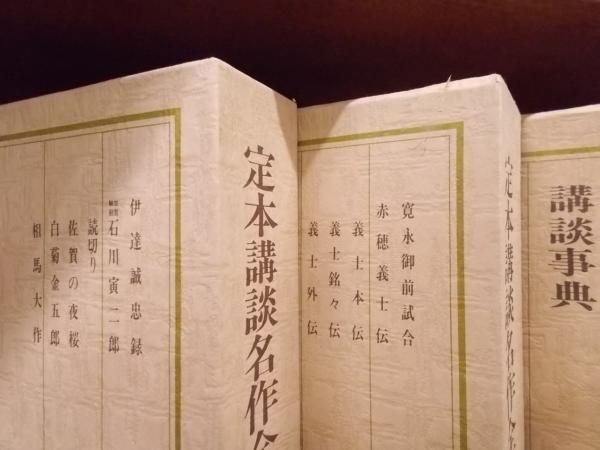 講談事典
定本講談名作全
寛永御前試合
赤穂義士伝
義士本伝
義士銘々伝
義士外伝
定本講談名作全
伊達誠忠録
石川寅二郎
読切り
佐賀の夜桜
白菊金五郎
相馬大作